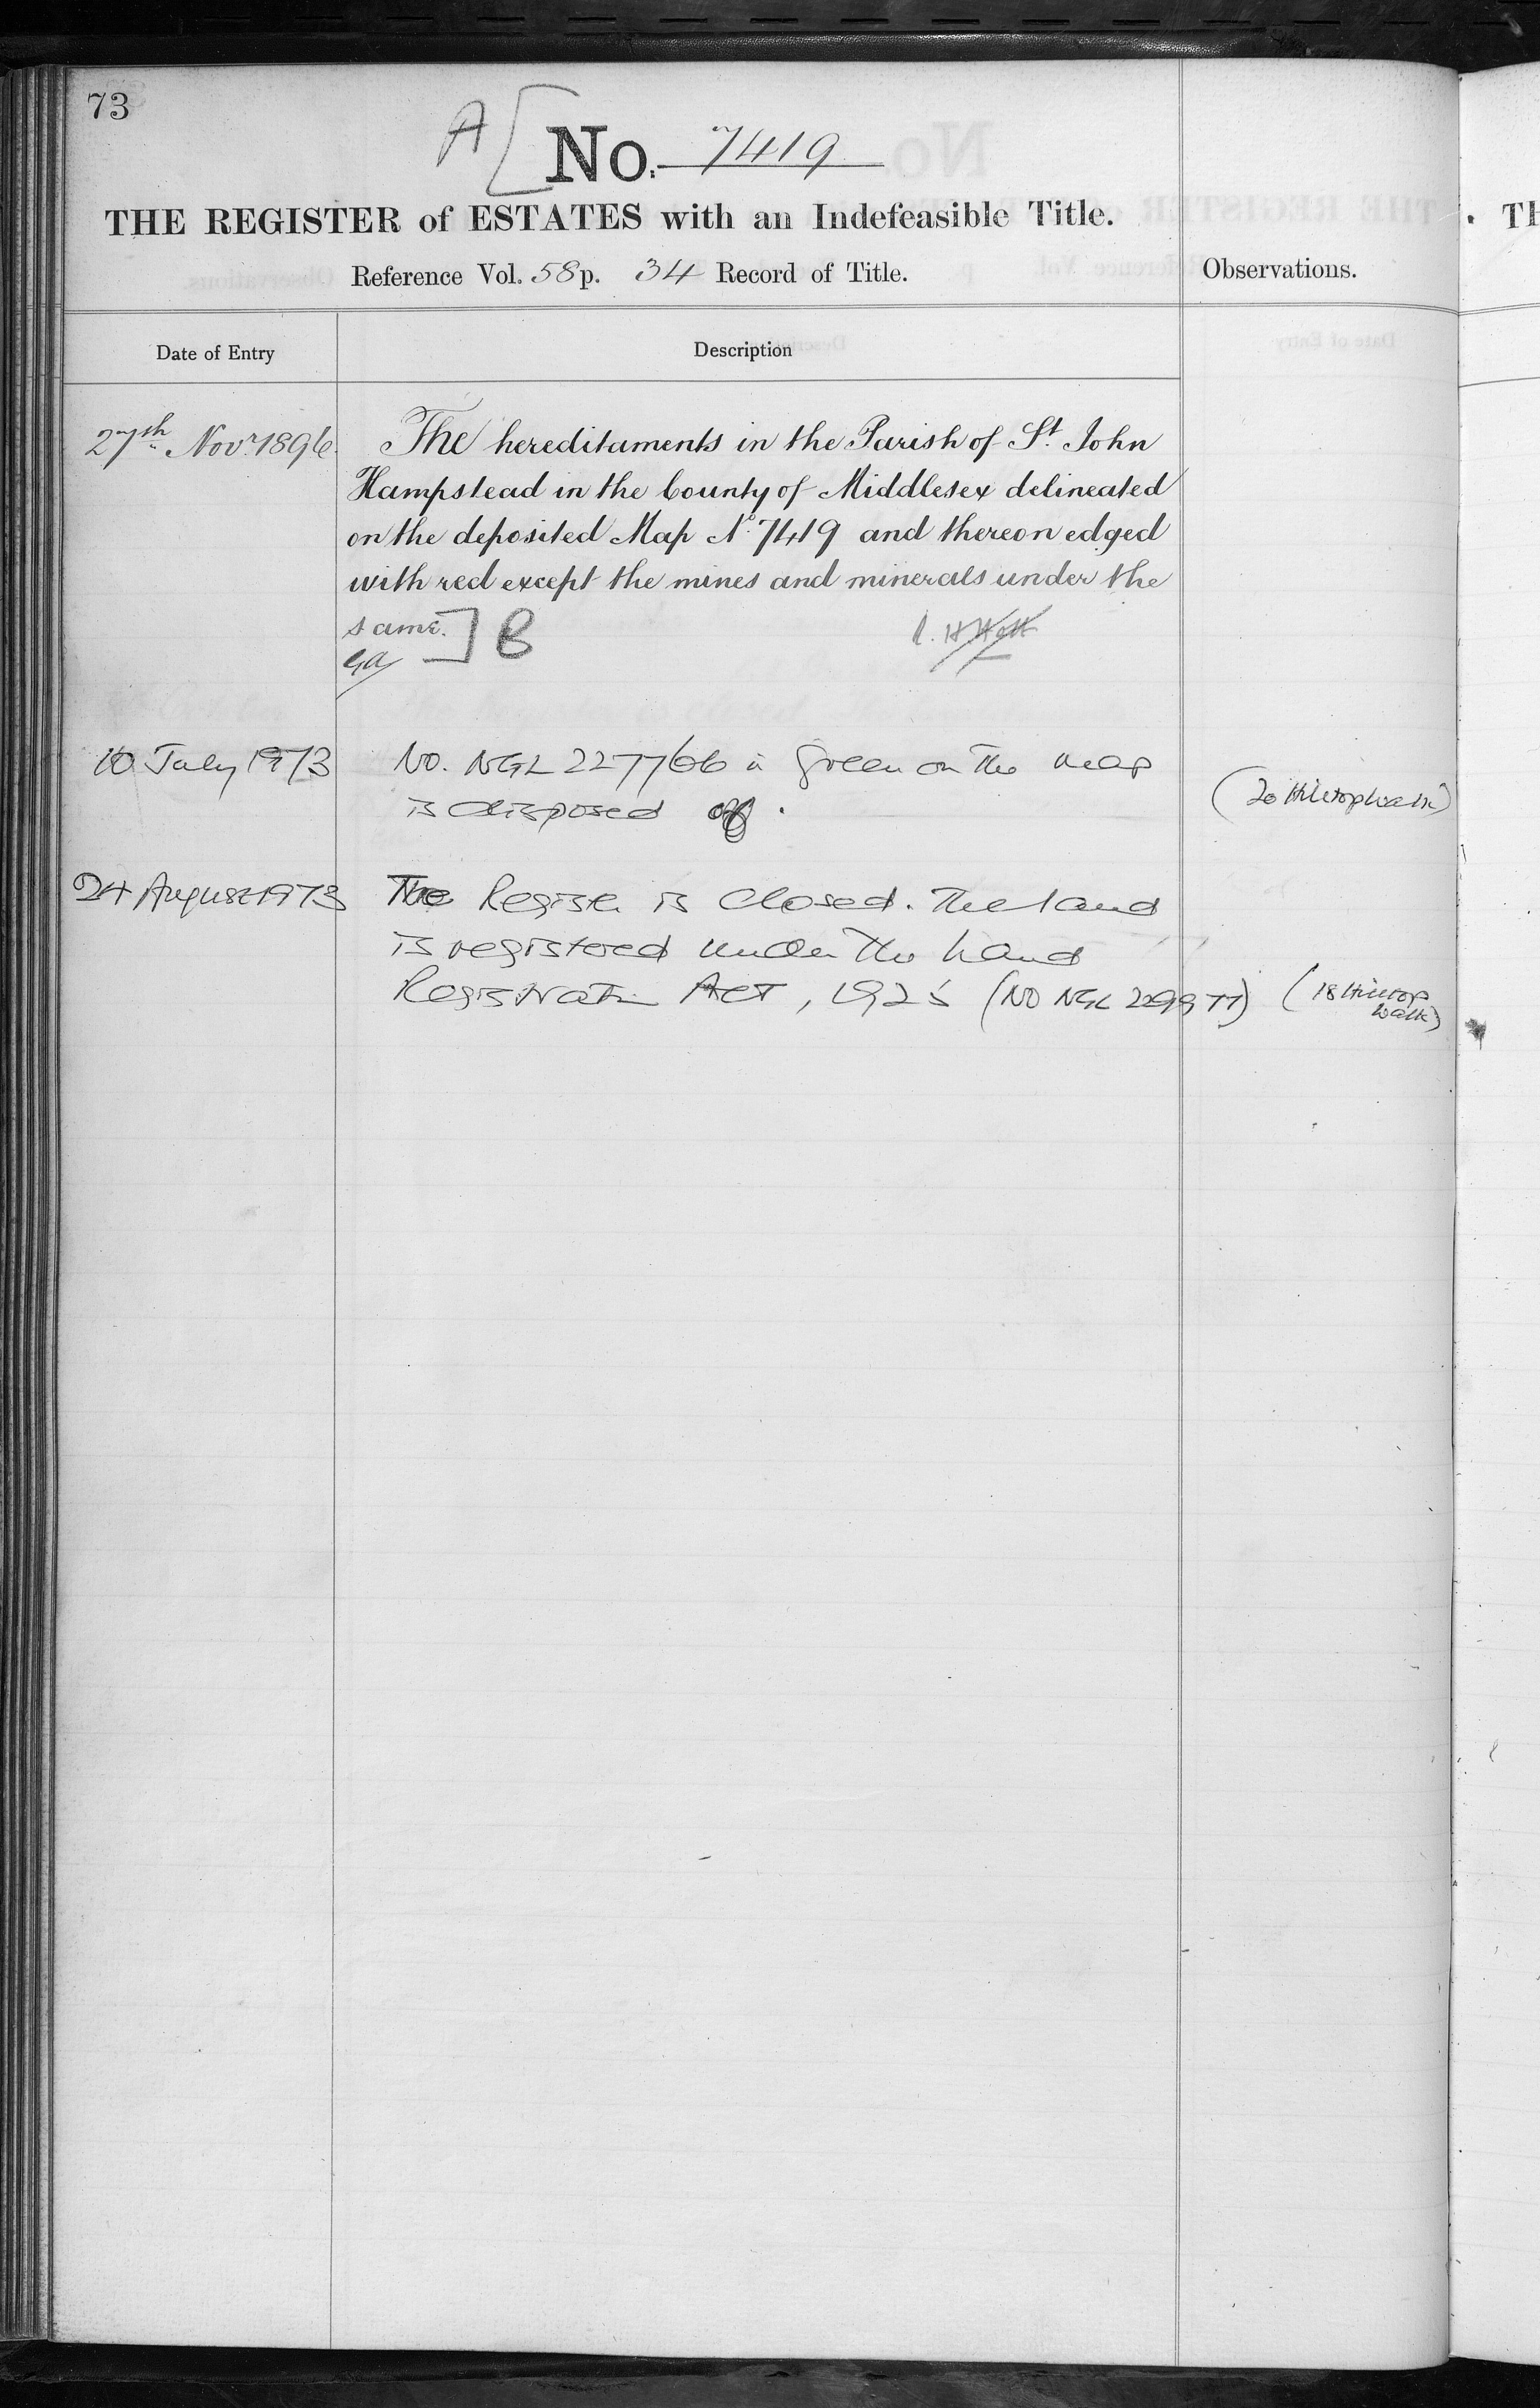 73
A [ No. 7419
THE REGISTER of ESTATES with an Indefeasible Title.
Reference Vol. 58 p. 34 Record of Title.
Observations.
Date of Entry
Description
27th Novr 1896.
The hereditaments in the Parish of St. John
Hampstead in the County of Middlesex delineated
on the deposited Map No. 7419 and thereon edged
with red except the mines and minerals under the
same. ] B
10 July 1973
No. NGL 227766 in green on the map
is disposed of.
(20 Hilltop Walk)
24 August 1973
The Register is closed. The land
is registered under the Land
Registration Act, 1925 (NO NGL
(18 Hilltop
Walk)
TH